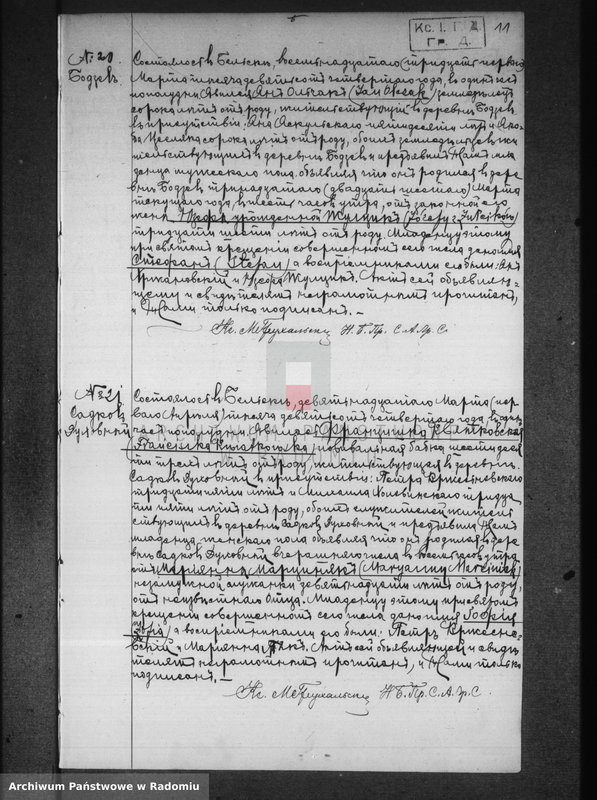 Кс. I. Г. Д.
Гр. Д.
11
№ 20
Бодзевъ
Состоялось въ Бельскъ, восемнадцатаго (тридцать перваго)
Марта тысяча девятьсотъ четвертаго года, въ одинъ часъ
пополудни. Явился Янъ Ольчакъ (Jan Olczak) земледѣлецъ
сорока лѣтъ отъ роду, жительствующій въ деревнѣ Бодзевъ
въ присутствіи: Яна пятидесяти лѣтъ и
сорока лѣтъ отъ роду, обоихъ земледѣльцевъ жи-
тельствующихъ въ деревнѣ Бодзевъ и предъявилъ Намъ мла-
денца мужескаго пола, объявляя что онъ родился въ дере-
внѣ Бодзевъ тринадцатаго (двадцать шестаго) Марта
текущаго года, въ шесть часовъ утра, отъ законной его
жены (Józefy z)
тридцати шести лѣтъ отъ роду. Младенцу этому
при святомъ крещеніи совершенномъ сего числа дано имя
Стефанъ (Stefan) а воспріемниками его были: Янъ
и Актъ сей объявляю-
щему и свидѣтелямъ неграмотнымъ прочитанъ,
и Нами только подписанъ. —
Кс. Н. Б. Пр. С. А. Гр. С.
№ 21
Садковъ
Духовный
Состоялось въ Бельскъ, девятнадцатаго Марта (пер-
ваго Апрѣля) тысяча девятьсотъ четвертаго года, въ
часъ пополудни. Явилась Францишка Квятковская
(Franciszka Kwiatkowska) повивальная бабка шестидеся-
ти трехъ лѣтъ отъ роду, жительствующая въ деревнѣ
Садковъ Духовный въ присутствіи: Петра
тридцати пяти лѣтъ и тридца-
ти пяти лѣтъ отъ роду, обоихъ служителей житель-
ствующихъ въ деревнѣ Садковъ Духовный и предъявила Намъ
младенца женскаго пола объявляя что онъ родился въ дере-
внѣ Садковъ Духовный вчерашняго числа въ восемь часовъ утра
отъ Маріанны Марциняк (Maryanny Marciniak)
незамужной служанки девятнадцати лѣтъ отъ роду,
отъ неизвѣстнаго Отца. Младенцу этому при святомъ
крещеніи совершенномъ сего числа дано имя Софія
(Zofia) а воспріемниками его были: Петръ
и Маріанна Актъ сей объявляющей и свидѣ-
телямъ неграмотнымъ прочитанъ, и Нами только
подписанъ. —
Кс. Н. Б. Пр. С. А. Гр. С.
Archiwum Państwowe w Radomiu